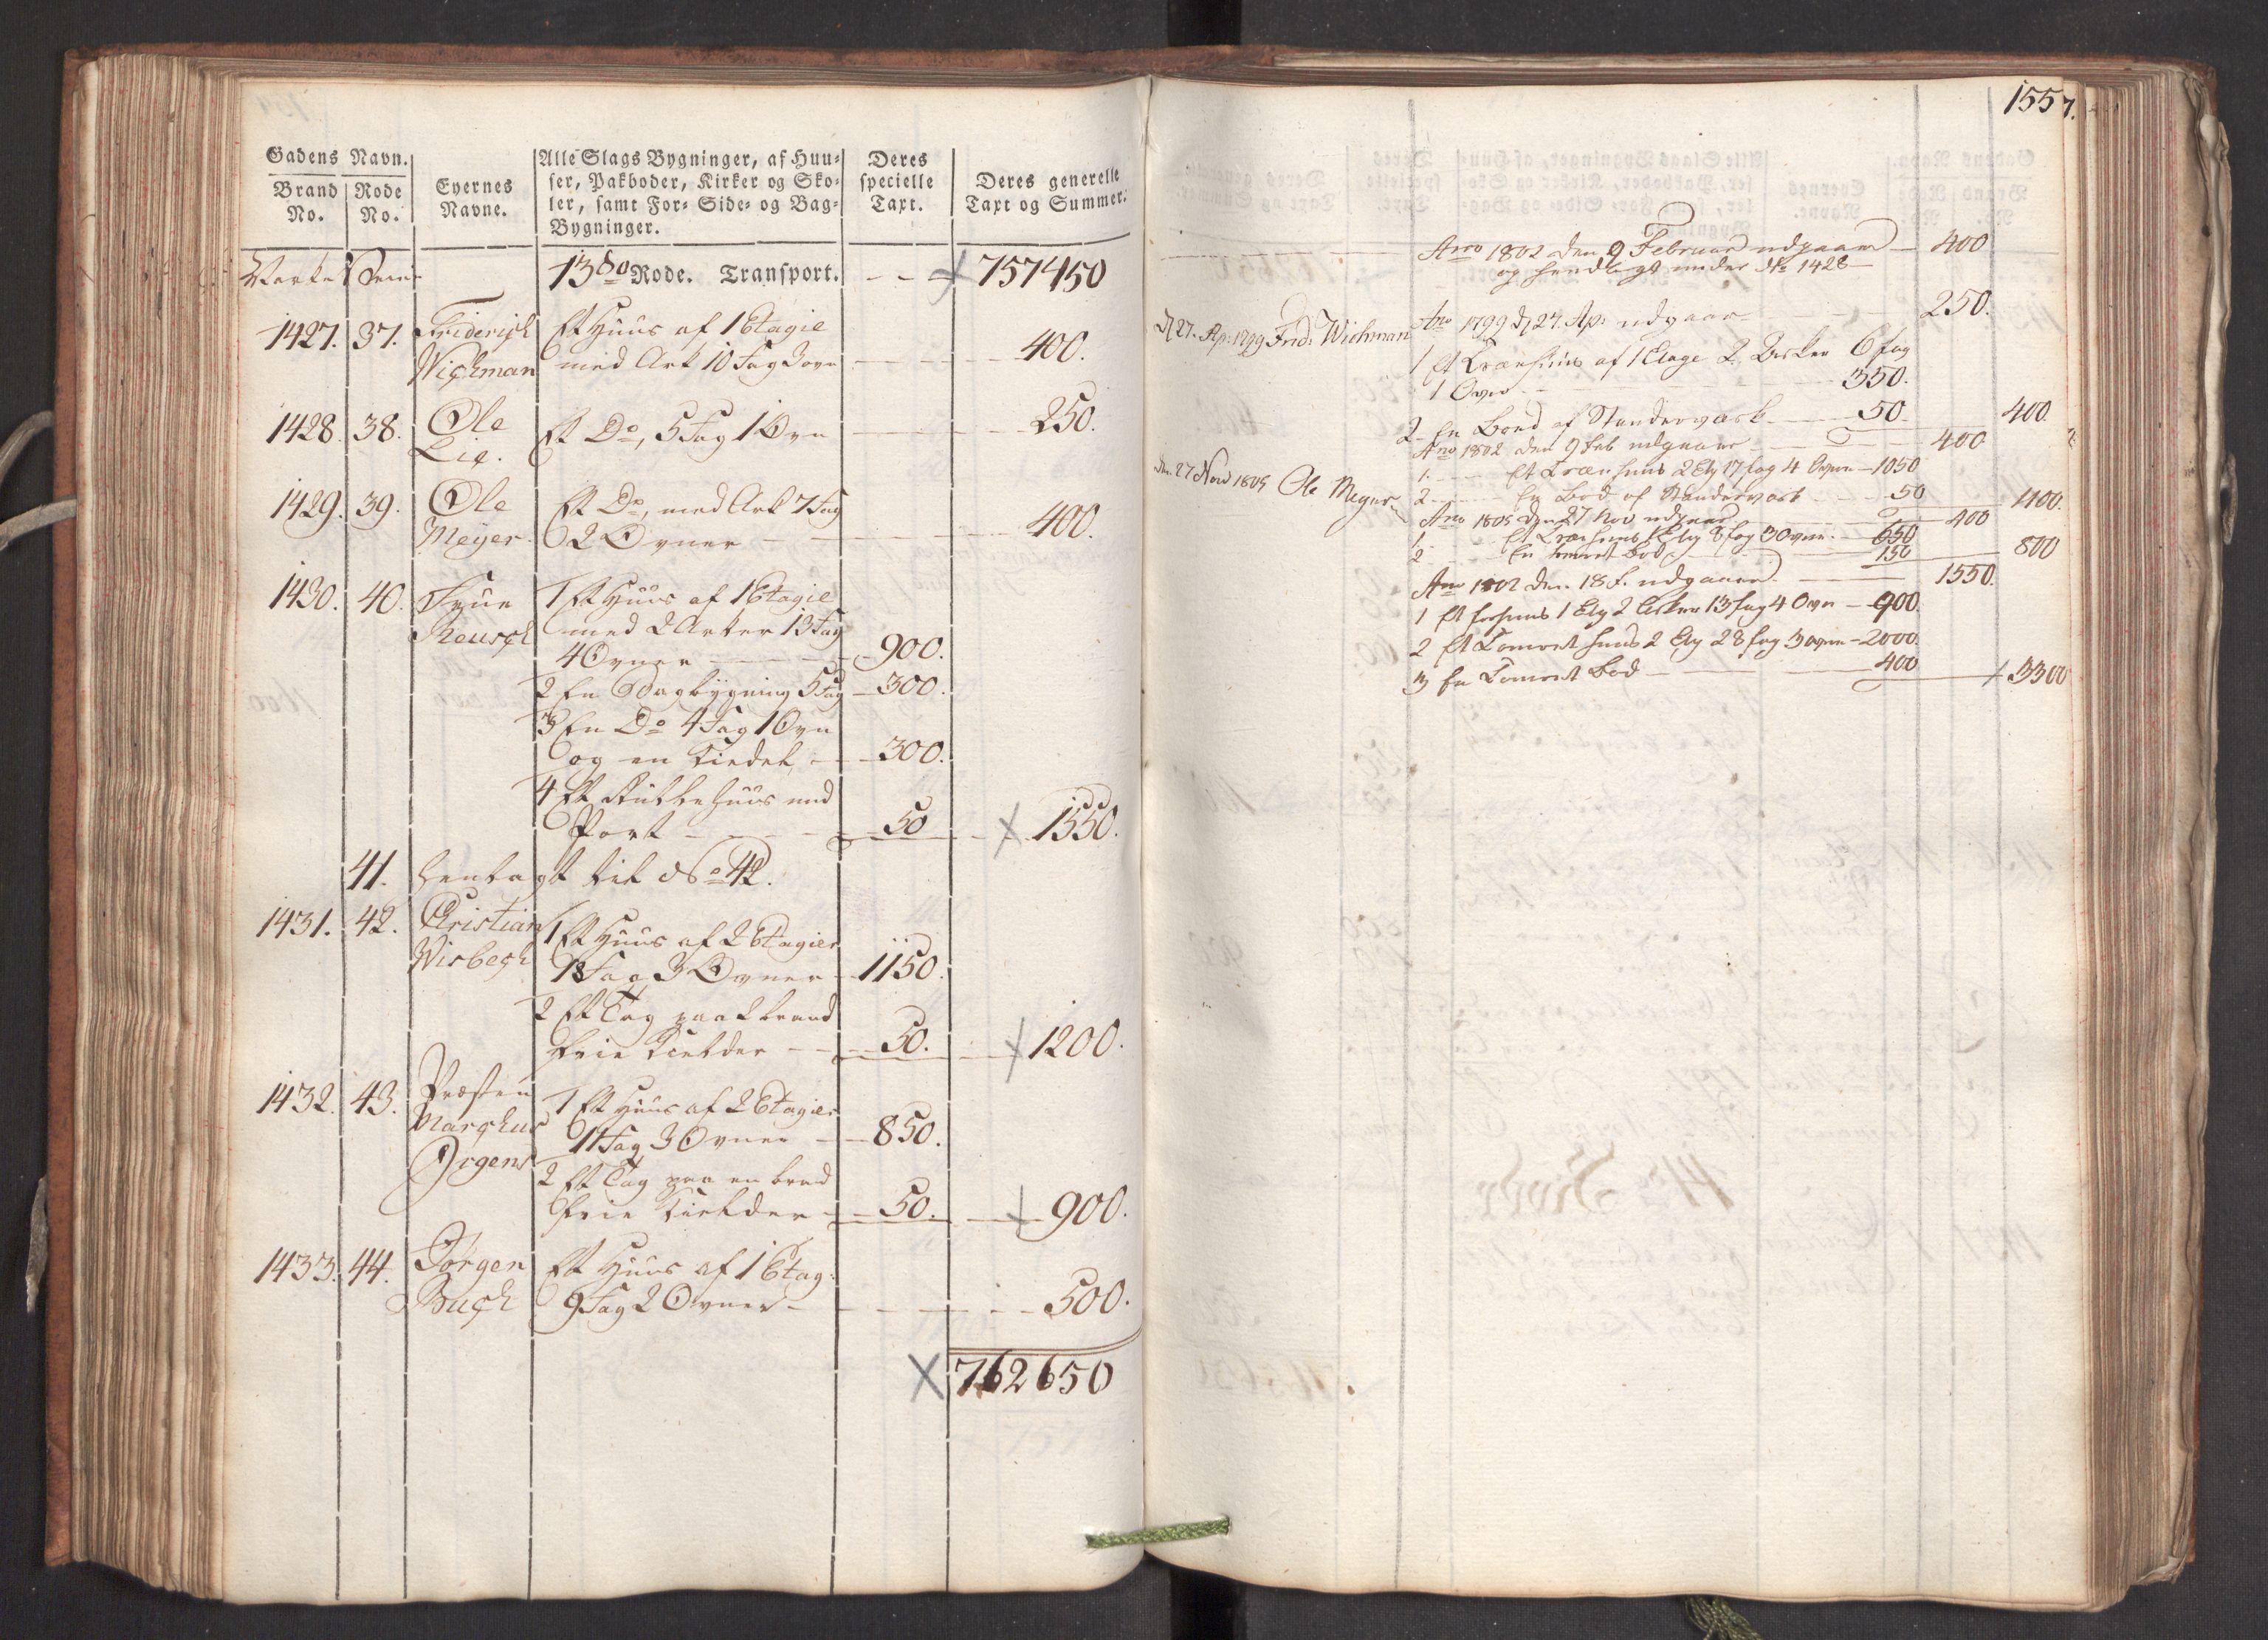 Gadens Navn.
Brand No. | Rode No. | Eyernes Navne. | Alle Slags Bygninger, af Huu-
ser, Pakboder, Kirker og Sko-
ler, samt For- Side- og Bag-
Bygninger. | Deres specielle Taxt. | Deres generelle Taxt og Summer.
13de Rode. Transport. - - 757450
1427. 37. Friderich Et Huus af 1 Etagie
Wichman med Ark 10 Fag 3 ovn - - 400.
1428. 38. Ole
Lie. Et Do, 5 Fag 1 Ovn - - 250.
1429. 39. Ole Et Do, med Ark 7 Fag
Meyer. 2 Ovner - - 400.
1430. 40. 1 Et Huus af 1 Etagie
Reusch med 2 Arker 13 Fag
4 Ovner - - 900.
2 En Bagbygning 5 Fag - 300.
3 En Do 4 Fag 1 Ovn
og en Kielder - - 300.
4 Et huus med
Port - - 50 - 1550.
41. henlagt til No 42.
1431. 42. Christian 1 Et Huus af 2 Etagier
Wisbech 18 Fag 3 Ovner - 1150.
2 Et Tag paa 2 brand
frie Kielder - - 50. - 1200.
1432. 43. Præsten 1 Et Huus af 2 Etagier
Marchus 11 Fag 3 Ovner - 850.
Irgens 2 Et Tag paa en brand
frie Kielder - 50. - 900.
1433. 44. Jørgen Et Huus af 1 Etag:
Buch 9 Fag 2 Ovner - - 500.
762650
1557.
Anno 1802 den 9 Februar udgaaer - 400
og henlagt under No 1428
d 27. Ap: 1799 Frid: Wichman Ano 1799 d 27. Ap: udgaaer - 250.
1 Et Træehuus af 1 Etage 2 Arker 6 fag
1 Oven - 350.
2 En Boed af Standerværk - 50 - 400.
Ano 1802 den 9 Feb udgaaer - 400
1. Et Træe huus 2 Etg 17 fag 4 Ovne - 1050
2 - En Bod af Standerværk - 50 - 1100.
den 27 Nov 1805 Ole Meyer Ano 1805 den 27 Nov udgaaer - 400
1. Et Træehuus 1 Etg 8 fag 3 Ovne - 650
2 En tømret Bod - 150 - 800
Ano 1802 den 18 F. udgaaer - 1550.
1 Et forhuus 1 Etg 2 Arker 13 fag 4 Ovne - 900.
2 Et Tømret huus 2 Etg 28 fag 3 ovne - 2000.
3 En Tømret Bod - 400 - 3300